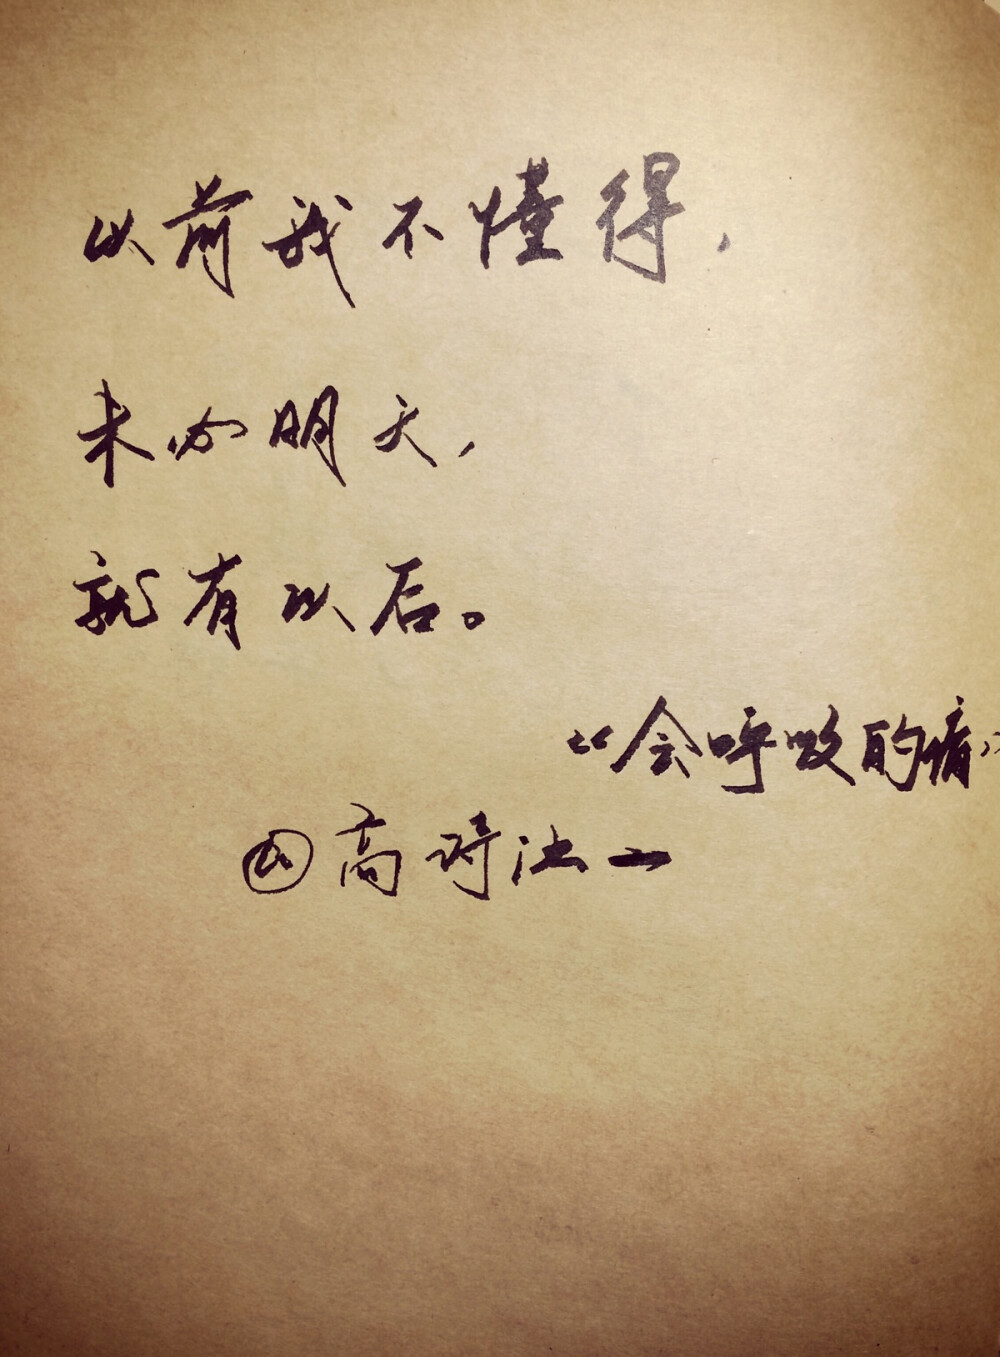 以前我不懂得，
未必明天，
就有以后。
“会呼吸的痛”
高